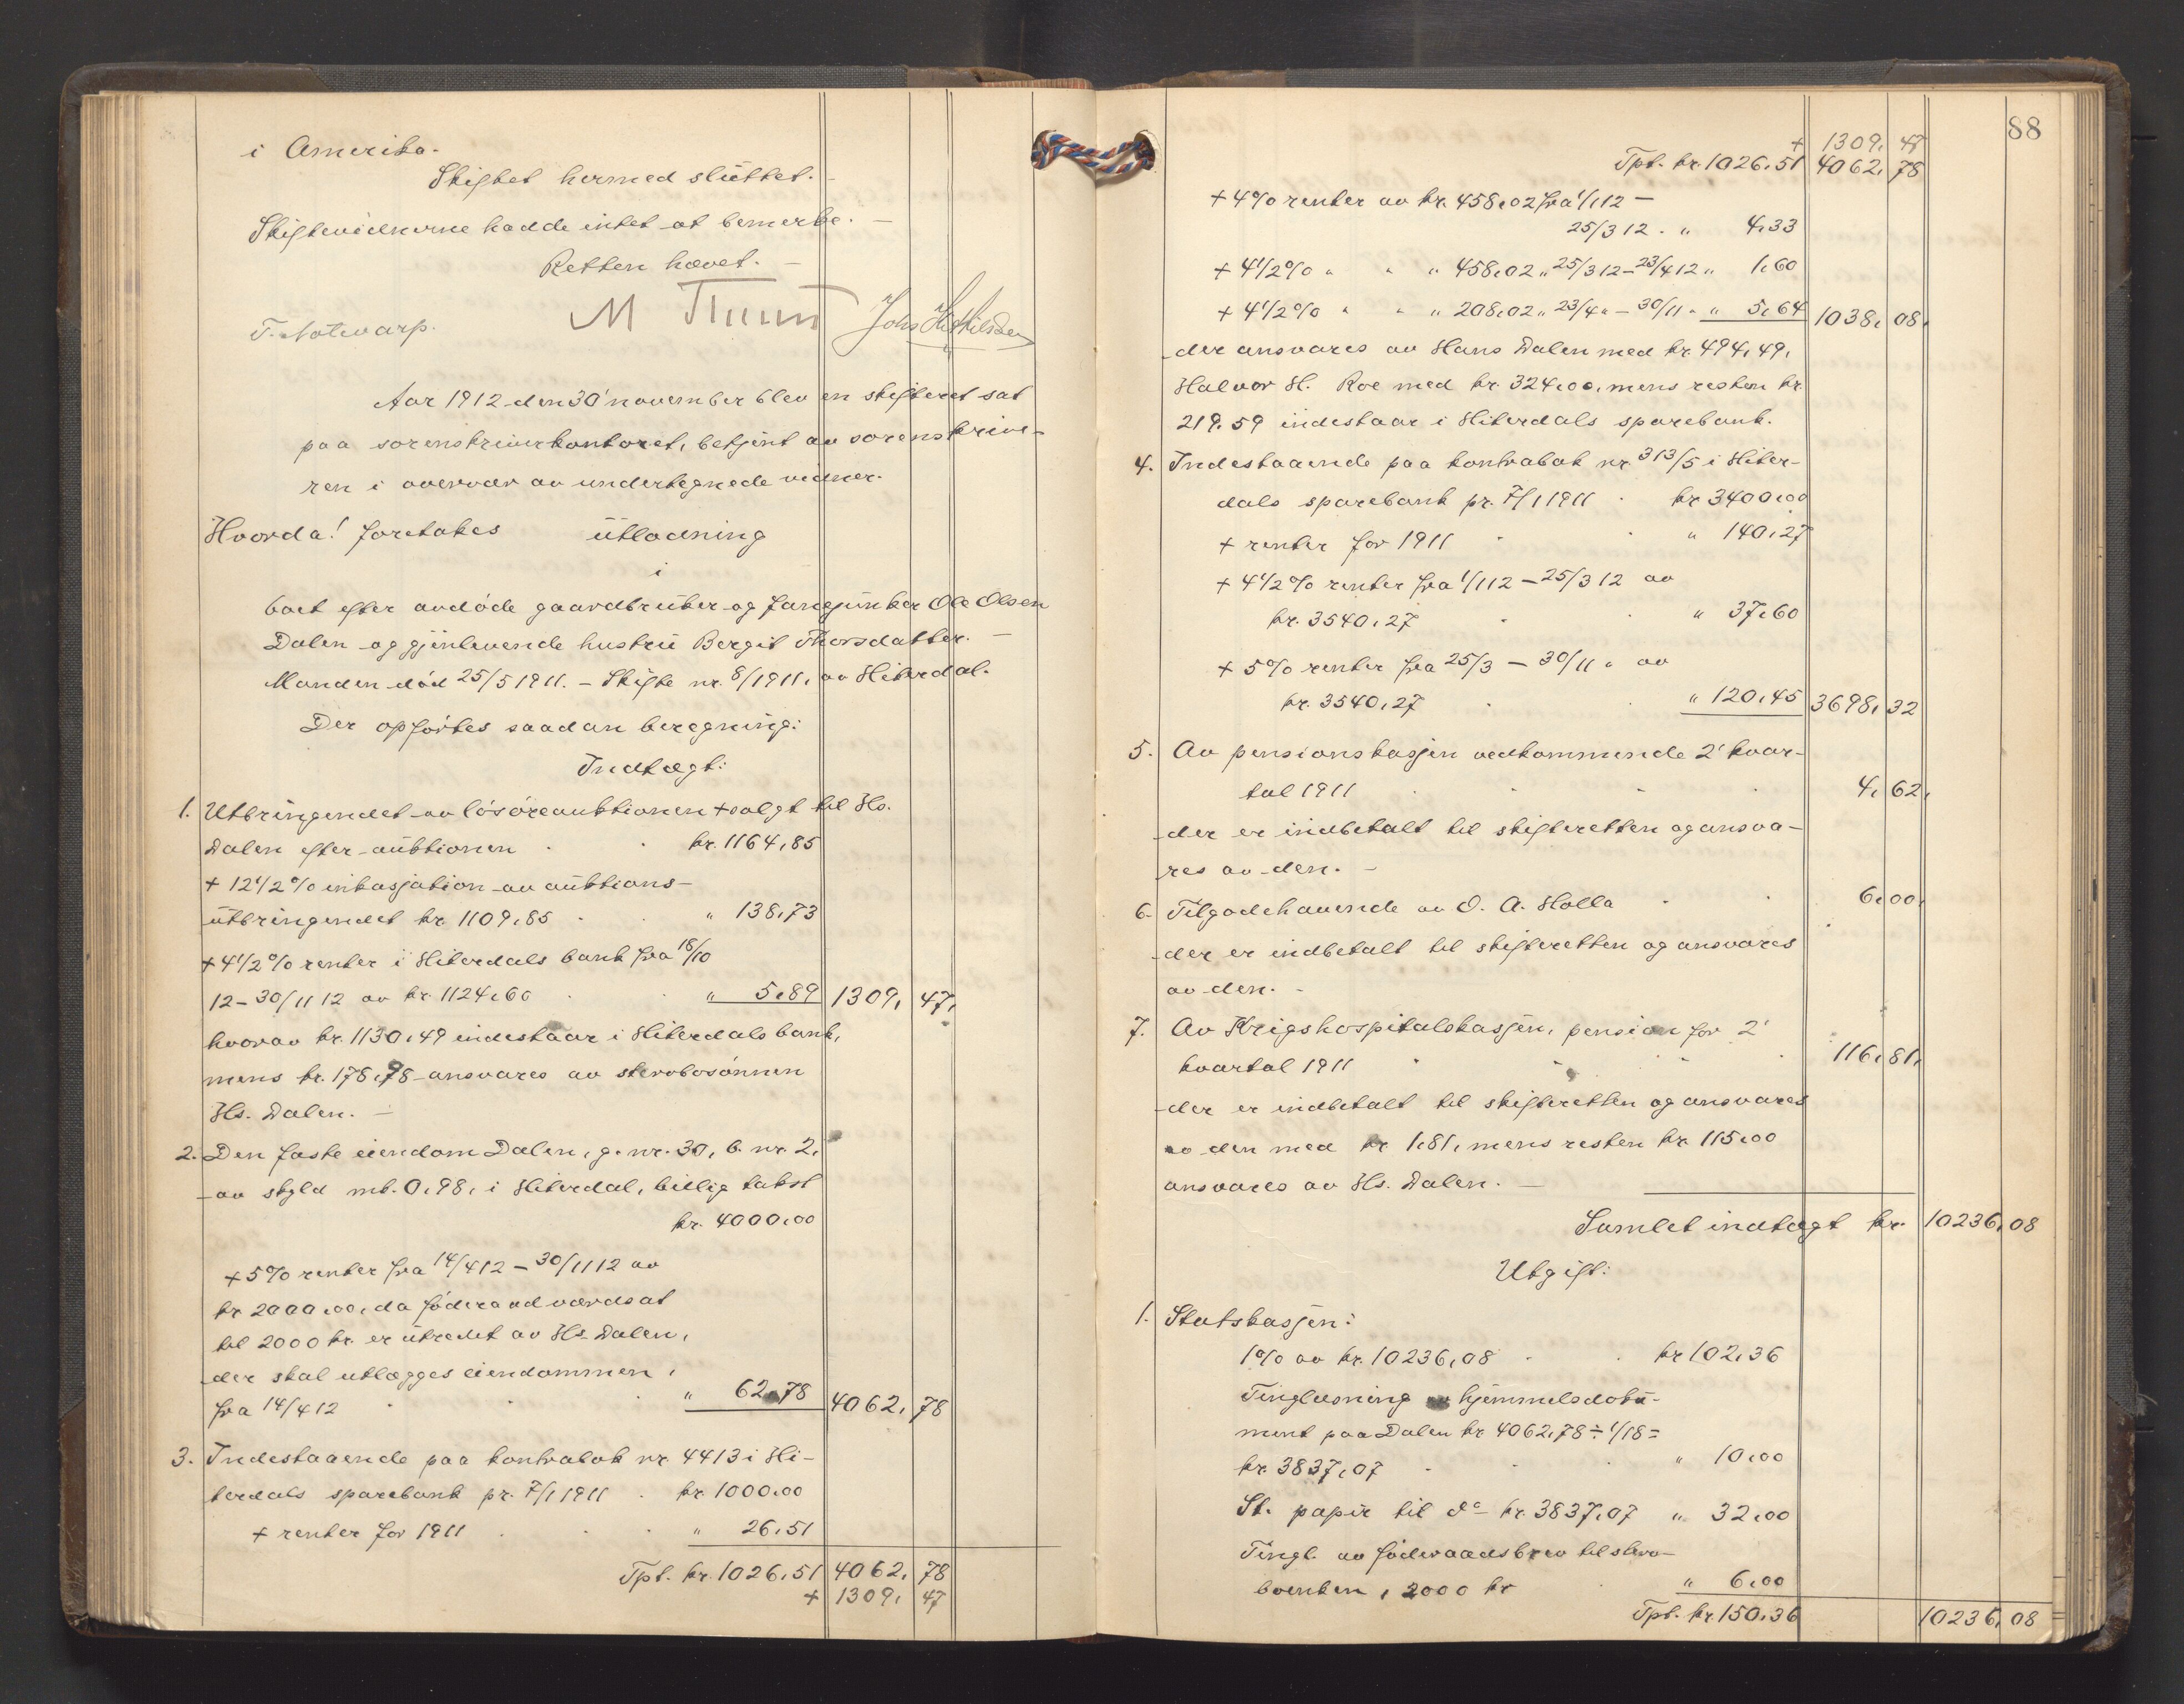 i Amerika.
Skiftet hermed sluttet. -
Skiftevidnerne hadde intet at bemerke. -
Retten hævet. -
T. Notevarp.
Aar 1912 den 30' november blev en skifteret sat
paa sorenskriverkontoret, betjent av sorenskrive-
ren i overvær av undertegnede vidner.
Hvorda! foretokes utlodning
i
boet efter avdöde gaardbruker og fanejunker Ole Olsen
Dalen og gjenlevende hustru Bergit Thorsdatter. -
Manden död 25/5 1911. - Skifte nr. 8/1911, av Hiterdal.
Der opförtes saadan beregning:
Indtægt:
1. Utbringendet av lösöreauktionen + solgt til Hs.
Dalen efter auktionen kr. 1164,85
+ 12 1/2 % inkassation av auktions-
utbringendet kr. 1109,85 " 138,73
+ 4 1/2 % renter i Hiterdals bank fra 18/10
12 - 30/11 12 av kr. 1124,60 " 5,89 1309, 47,
hvorav kr. 1130,49 indestaar i Hiterdals bank,
mens kr. 178,98 ansvares av stervbosönnen
Hs. Dalen. -
2. Den faste eiendom Dalen, g. nr. 30, b. nr. 2,
av skyld mk. 0,98, i Hiterdal, billig takst
kr. 4000,00
+ 5 % renter fra 14/4 12 - 30/11 12 av
kr 2000,00, da föderaad værdsat
til 2000 kr. er utredet av Hs. Dalen,
der skal utlægges eiendommen,
fra 14/4 12 " 62,78 4062, 78
3. Indestaaende paa kontrabok nr. 4413 i Hi-
terdals sparebank pr. 7/1 1911 . kr. 1000,00
+ renter for 1911 " 26,51
Tpt. kr. 1026,51 4062, 78
+ 1309, 47
88
+ 1309, 47
Tpt. kr. 1026,51 4062, 78
+ 4 % renter av kr. 458,02 fra 1/1 12 -
25/3 12 . " 4,33
+ 4 1/2 % " " " 458,02 " 25/3 12 - 23/4 12 " 1,60
+ 4 1/2 % " " " 208,02 " 23/4 " - 30/11 " " 5,64 1038, 08,
der ansvares av Hans Dalen med kr. 494,49,
Halvor H. Roe med kr. 324,00, mens resten kr.
219,59 indestaar i Hiterdals sparebank.
4. Indestaaende paa kontrabok nr 313/5 i Hiter-
dals sparebank pr. 7/1 1911 . kr 3400,00
+ renter for 1911 " 140,27
+ 4 1/2 % renter fra 1/1 12 - 25/3 12 av
kr. 3540,27 " 37,60
+ 5 % renter fra 25/3 - 30/11 " av
kr. 3540,27 " 120,45 3698, 32
5. Av pensionskassen vedkommende 2' kvar-
tal 1911 4, 62,
der er indbetalt til skifteretten og ansva-
res av den. -
6. Tilgodehavende av O. A. Holla 6,00,
der er indbetalt til skifteretten og ansvares
av den. -
7. Av Krigshospitalskassen, pension for 2'
kvartal 1911 116, 81,
der er indbetalt til skifteretten og ansvares
av den med kr 1,81, mens resten kr. 115,00
ansvares av Hs. Dalen. -
Samlet indtægt kr. 10236,08
Utgift:
1. Statskassen:
1 % av kr. 10236,08 . kr 102,36
Tinglæsning av hjemmelsdoku-
ment paa Dalen kr 4062,78 ÷ 1/18 =
kr. 3837,07 " 10,00
St. papir til do - kr. 3837,07 " 32,00
Tingl. av föderaadsbrev til sterv-
boenken, 2000 kr " 6,00
Tpt. kr. 150,36 10236,08